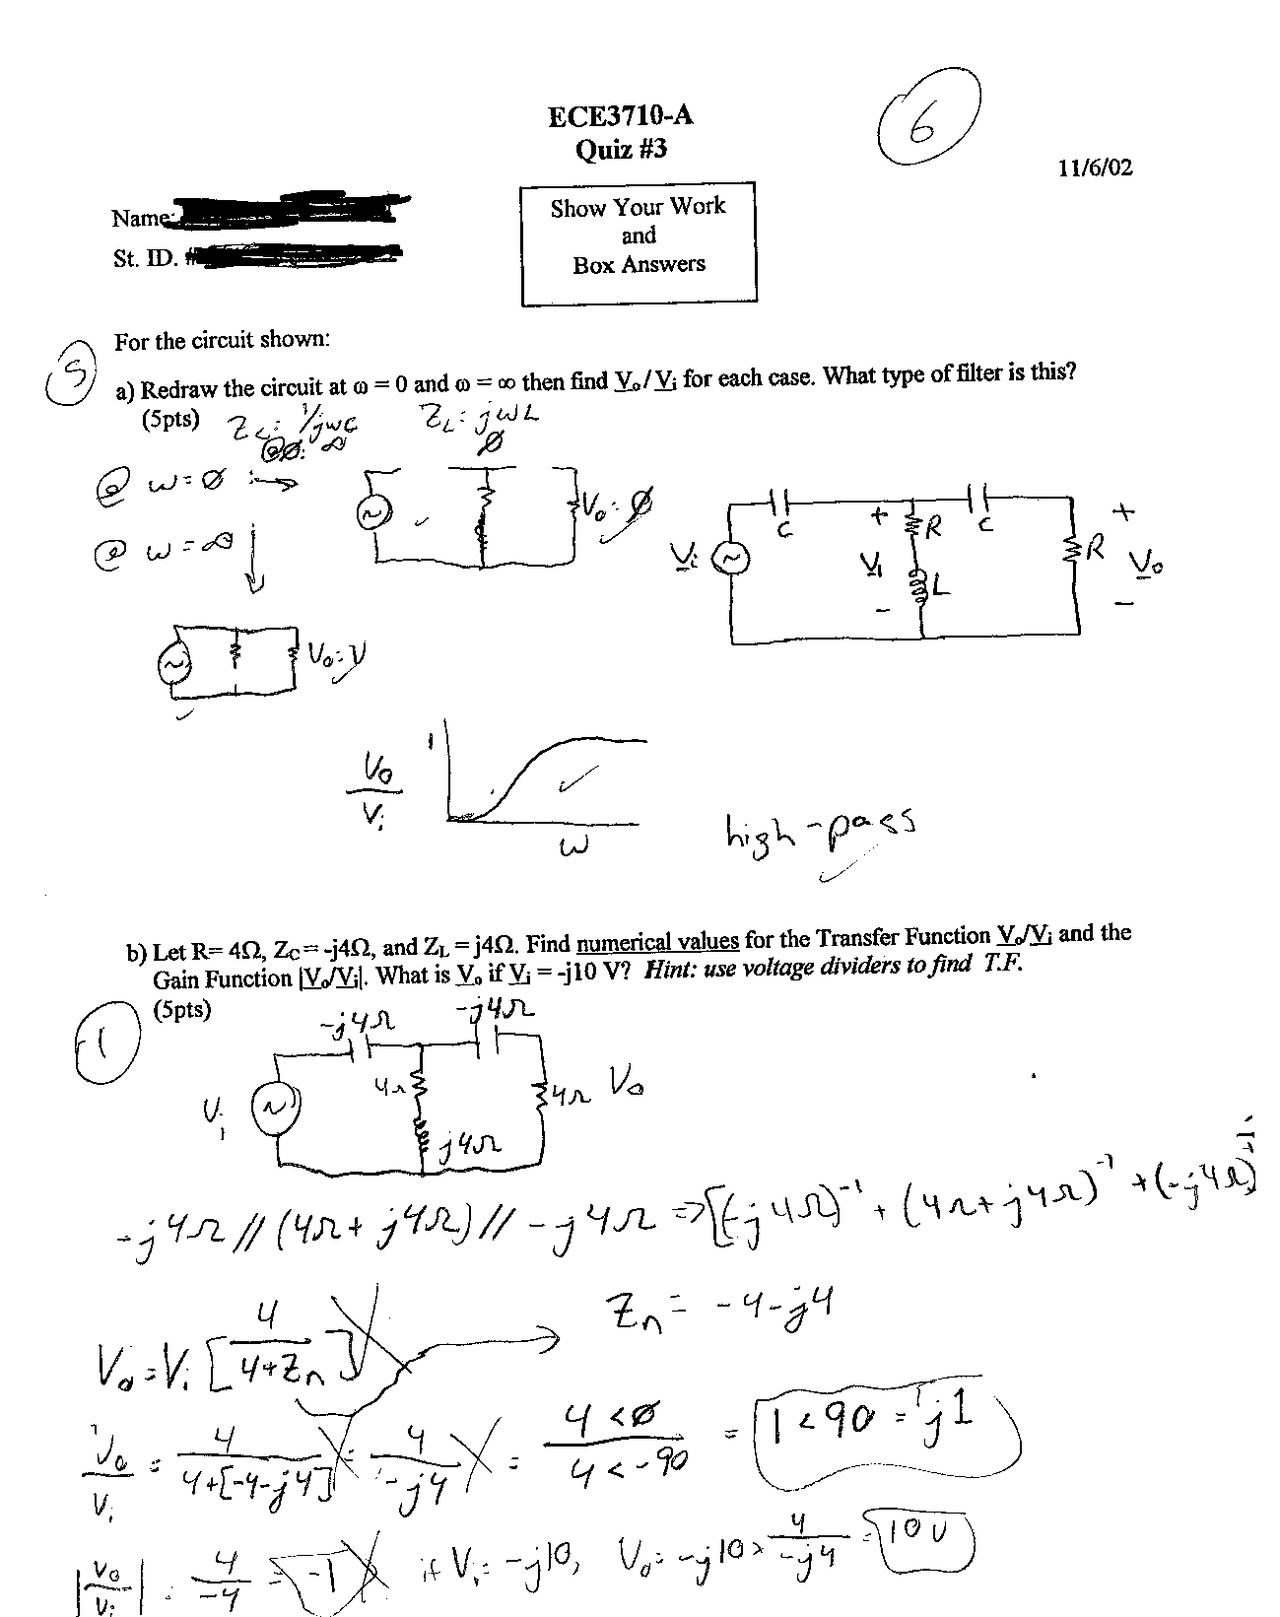 ECE3710-A
Quiz #3
6
11/6/02
Name:
St. ID. #
Show Your Work
and
Box Answers
For the circuit shown:
5
a) Redraw the circuit at ω = 0 and ω = ∞ then find Vo/Vi for each case. What type of filter is this?
(5pts)
Zc: 1/jωC
@∅: ∞
ZL: jωL
∅
@ ω=∅ :→
Vo: ∅
@ ω=∞ ↓
C
C
+
R
Vi
V1
L
-
R
+
Vo
-
Vo=V
Vo/Vi
1
ω
high-pass
b) Let R= 4Ω, ZC= -j4Ω, and ZL = j4Ω. Find numerical values for the Transfer Function Vo/Vi and the
Gain Function |Vo/Vi|. What is Vo if Vi = -j10 V? Hint: use voltage dividers to find T.F.
(5pts)
-1
-j4Ω
-j4Ω
4Ω
j4Ω
4Ω
Vo
Vi
-j4Ω // (4Ω + j4Ω) // -j4Ω => [(-j4Ω)^-1 + (4Ω + j4Ω)^-1 + (-j4Ω)^-1
Vo = Vi [4/(4+Zn)]
Zn = -4-j4
Vo/Vi = 4/(4+[-4-j4]) = 4/(-j4) = (4<∅)/(4<-90) = 1<90 = j1
|Vo/Vi| = 4/-4 = -1
if Vi = -j10, Vo = -j10 × 4/(-j4) = 10V